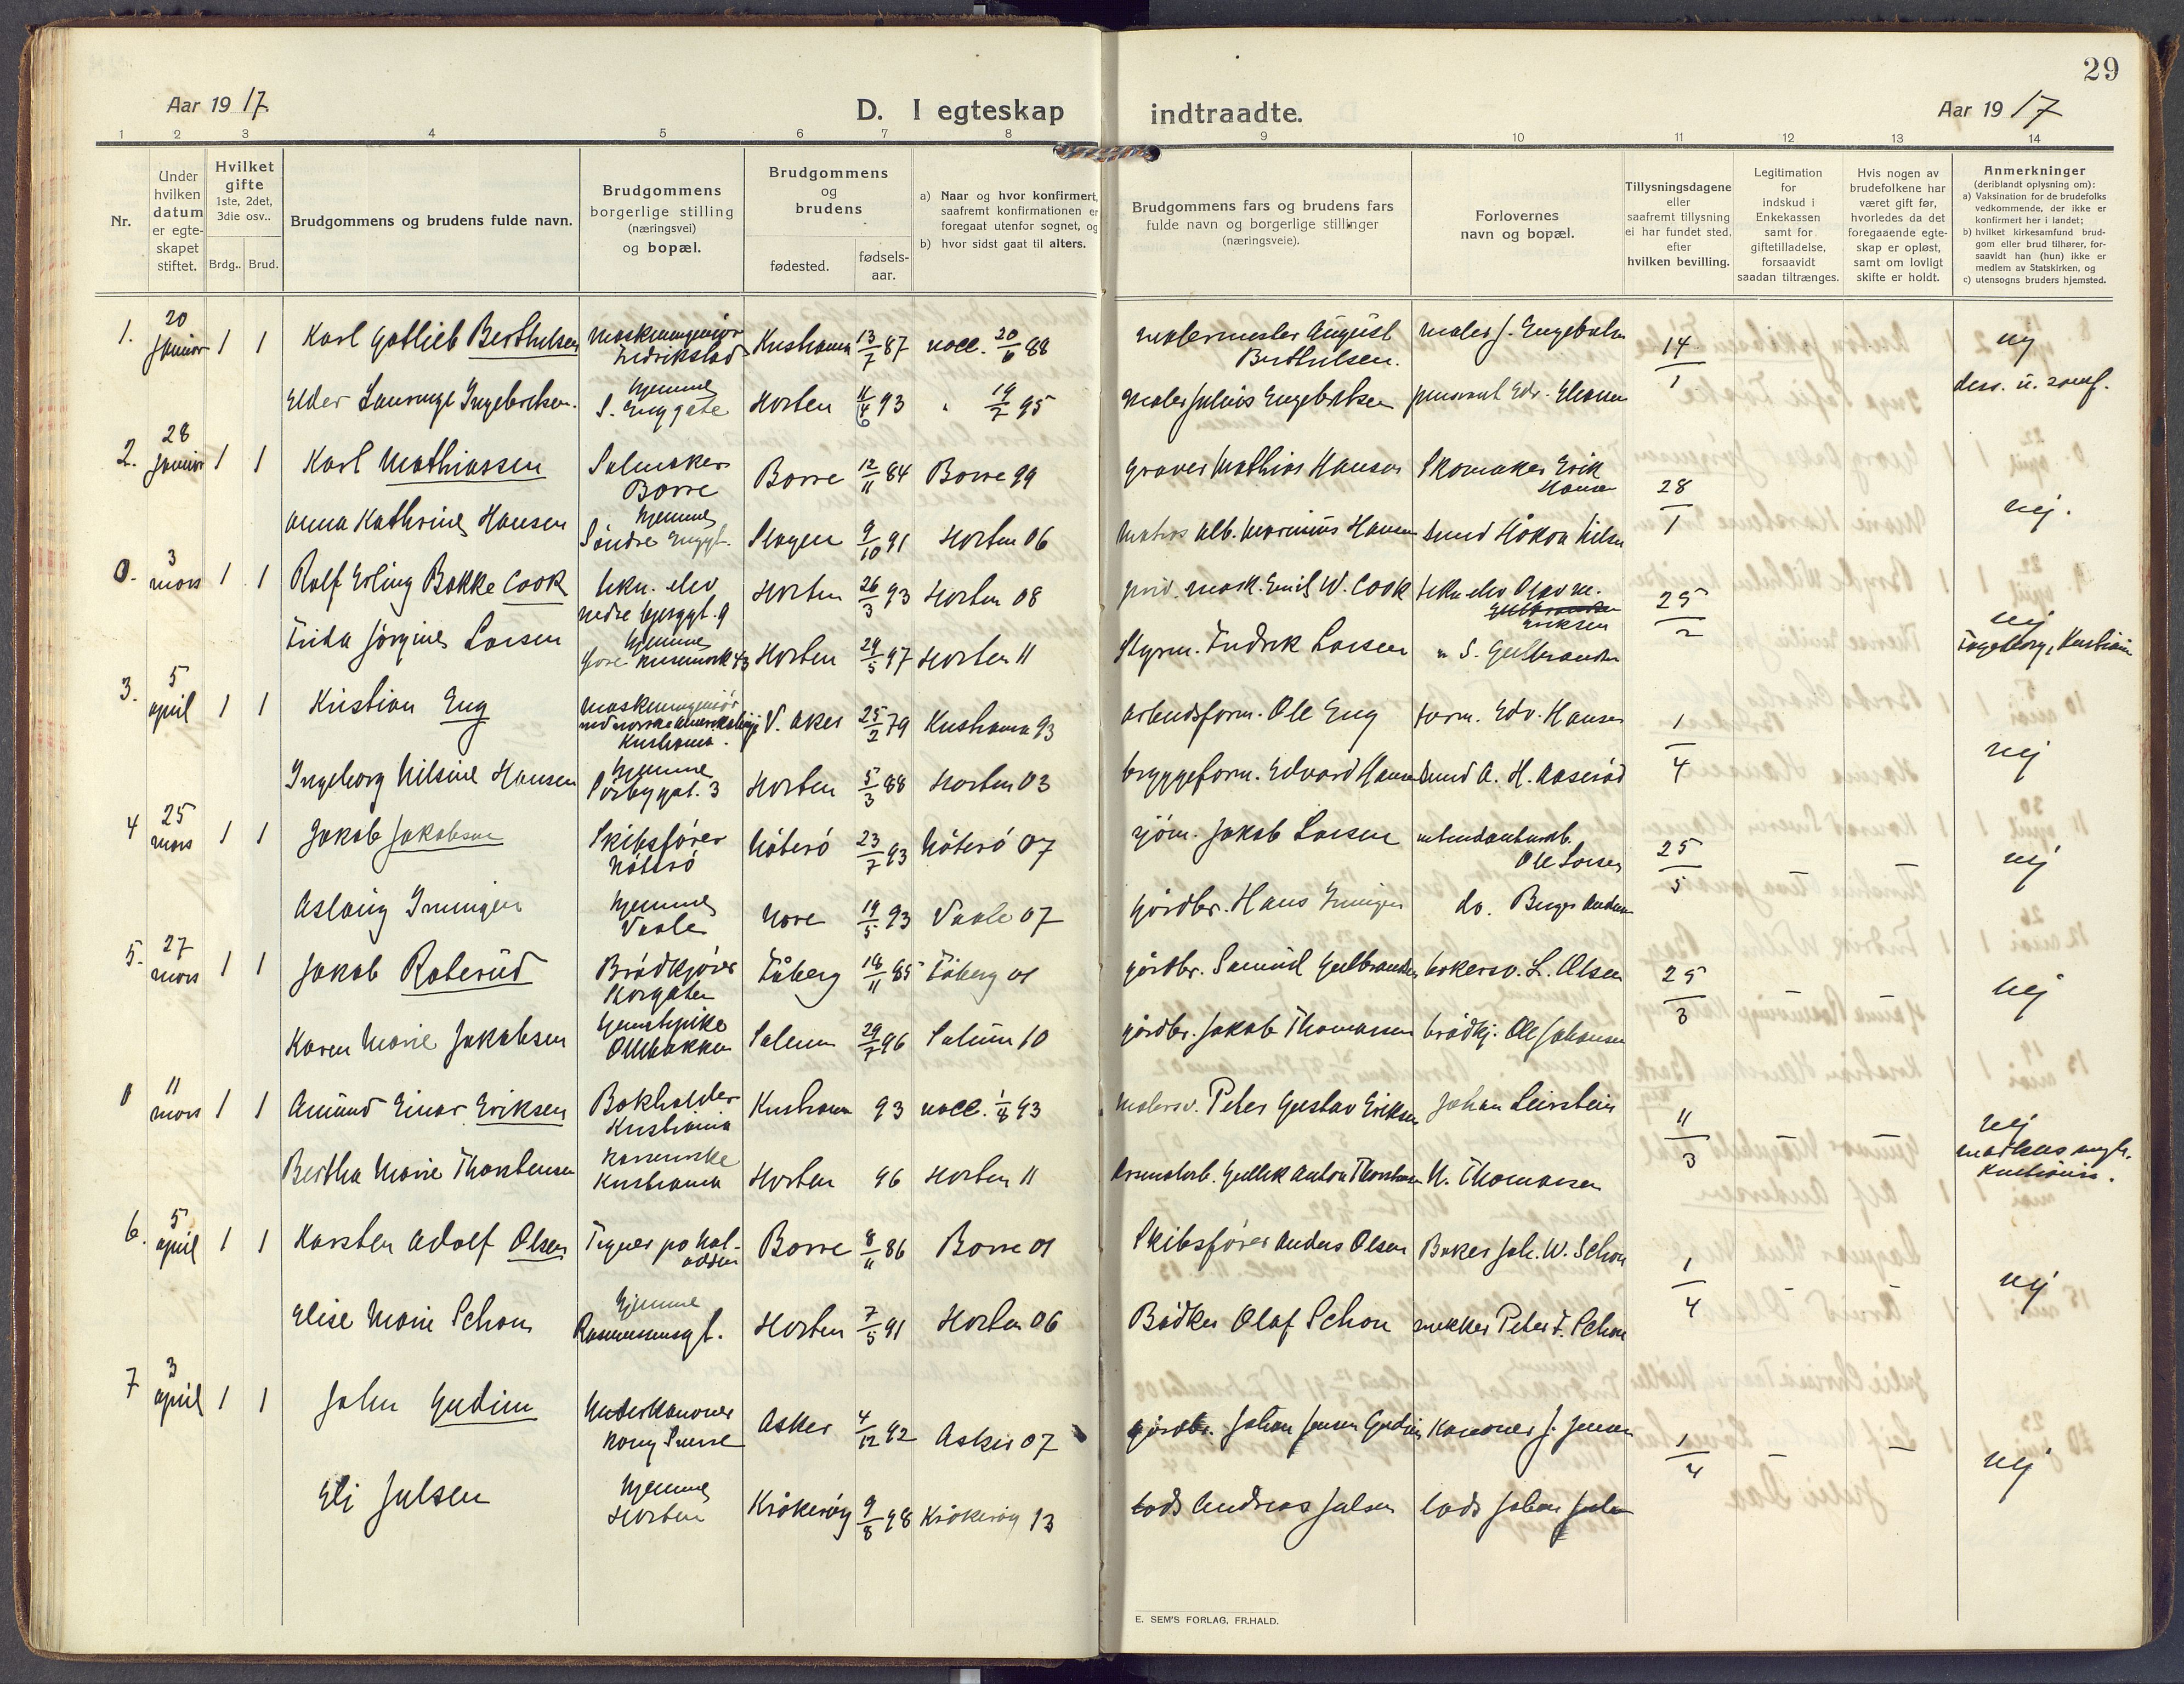 29
Aar 1917
D. I egteskap indtraadte.
Aar 1917
1 2 3 4 5 6 7 8 9 10 11 12 13 14
Nr.
Under hvilken datum er egteskapet stiftet.
Hvilket gifte 1ste, 2det, 3die osv..
Brdg.. Brud.
Brudgommens og brudens fulde navn.
Brudgommens borgerlige stilling (næringsvei) og bopæl.
Brudgommens og brudens
fødested.
fødsels-aar.
a) Naar og hvor konfirmert, saafremt konfirmationen er foregaat utenfor sognet, og
b) hvor sidst gaat til alters.
Brudgommens fars og brudens fars fulde navn og borgerlige stillinger (næringsveie).
Forlovernes navn og bopæl.
Tillysningsdagene eller saafremt tillysning ei har fundet sted, efter hvilken bevilling.
Legitimation for indskud i Enkekassen samt for giftetilladelse, forsaavidt saadan tiltrænges.
Hvis nogen av brudefolkene har været gift før, hvorledes da det foregaaende egteskap er opløst, samt om lovligt skifte er holdt.
Anmerkninger
(deriblandt oplysning om):
a) Vaksination for de brudefolks vedkommende, der ikke er konfirmert her i landet;
b) hvilket kirkesamfund brudgom eller brud tilhører, forsaavidt han (hun) ikke er medlem av Statskirken, og
c) utensogns bruders hjemsted.
1. 20 januar 1 1 Karl Gotlieb Berthulsen Maskiningeniør Fredrikstad Kristiania 13/7 87 vacc. 20/6 88 Malermester August Berthulsen. 14/1 nej
Ingebretsen. hjemme S. Enggate Horten 93 19/2 95 Maler Julius Engebretsen
2. 28 januar 1 1 Karl Mathiassen Salmaker Borre Borre 12/11 84 Borre 99 Graver Mathias Hansen Skomaker Erik Hansen 28/1 nej.
Anna Kathrine Hansen hjemme Søndre Enggt. Slagen 9/10 91 Horten 06 Matros Alb. Marinius Hansen
0. 3 mars 1 1 Rolf Erling Bakke Cook tekn. elev Horten 26/3 93 Horten 08 Emil W. Cook tekn. elev Eriksen 25/2 nej
Frida Jørgine Larsen hjemme Horten 29/5 97 Horten 11 Styrm. Fredrik Larsen " S. Gulbrandsen
3. 5 april 1 1 Kristian Eng Maskiningeniør Kristiania. V. Aker 25/2 79 Kristiania 93 Arbeidsform. Ole Eng form. Edv. Hansen 1/4 nej
Ingeborg Nilsine Hansen hjemme 3 Horten 5/3 88 Horten 03 bryggeform. Edvard Hansen A. H. Aaserød
4 25 mars 1 1 Jakob Jakobsen Skibsfører Nøterø Nøterø 23/7 93 Nøterø 07 sjøm. Jakob Larsen Ole Larsen 25/3 – – nej
Aslaug hjemme Vaale 19/5 93 Vaale 07 gårdbr. Hans do. Birger
5. 27 mars 1 1 Jakob Roterud Brødkjører Storgaten Fåberg 18/11 85 Fåberg 01 gårdbr. Samuel Gulbrandsen bakersv. L. Olsen 25/3 – – nej
Karen Marie Jakobsen Ollebakken 29/7 96 10 gårdbr. Jakob Thomassen brødkj. Ole Johansen
0 11 mars 1 1 Amund Einar Eriksen Bokholder Kristiania Kristiania 93 vacc. 1/8 93 Malersv. Peter Gustav Eriksen Johan 11/3 – – nej Kristiania.
Bertha Marie Thorstensen Kristiania Horten 96 Horten 11 Gullik Anton Thorstensen N. Thomassen
6. 5 april 1 1 Karsten Adolf Olsen Borre 8/11 86 Borre 01 Skibsfører Anders Olsen Baker Joh. W. Schou 1/4 – – nej
Elise Marie Schou hjemme Rasmussensgt. Horten 7/5 91 Horten 06 Bødker Olaf Schou snekker Peter F. Schou
7 3 april 1 1 John Gudim Underkanoner Asker 4/12 92 Asker 07 gårdbr. Johan Jensen Gudim Kanoner J. Jensen 1/4 – – nej
Eli Julsen hjemme Horten Kråkerøy 9/8 98 Kråkerøy 13 Lods Andreas Julsen Lods Johan Julsen
E. SEM'S FORLAG, FR.HALD.